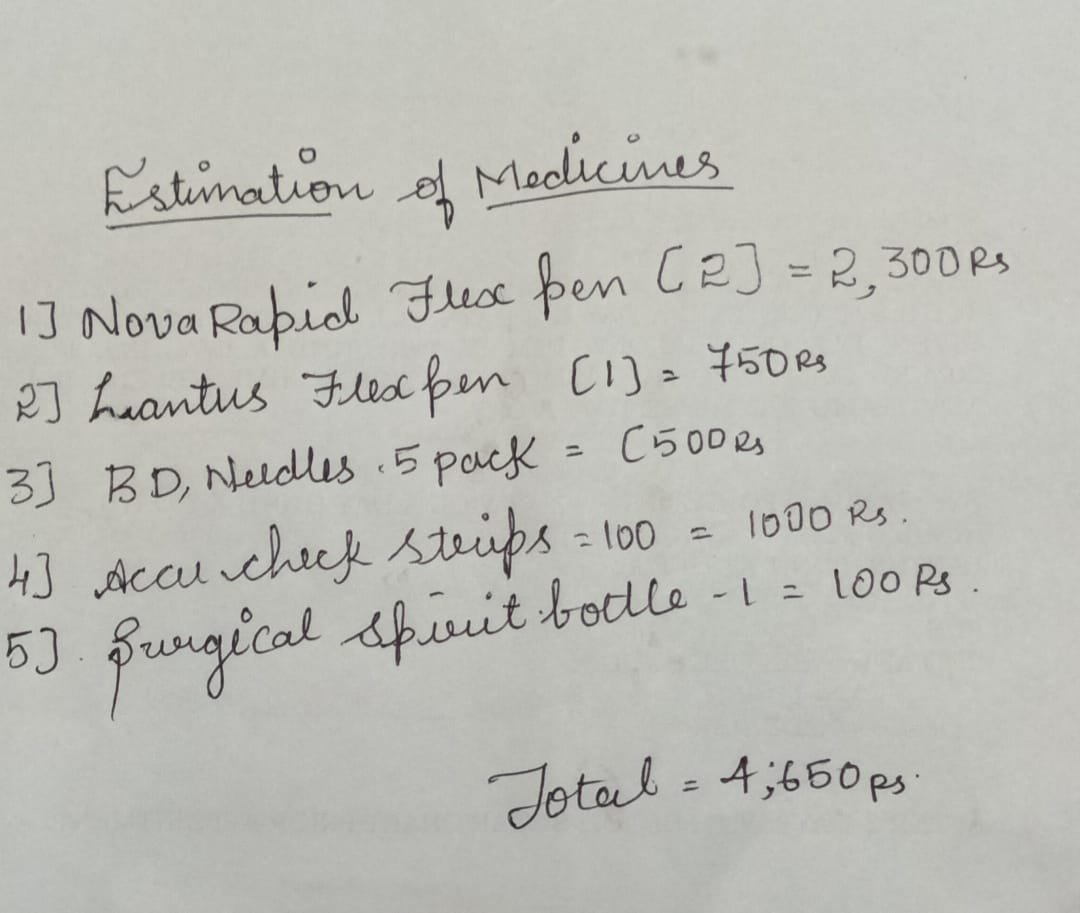 Estimation of Medicines
1] Nova Rapid Flex pen [2] = 2,300 Rs
2] Lantus Flex pen [1] = 750 Rs
3] BD, Needles . 5 pack = [500 Rs
4] Accu check strips = 100 = 1000 Rs.
5]. Surgical spirit bottle - 1 = 100 Rs.
Total = 4,650 Rs.